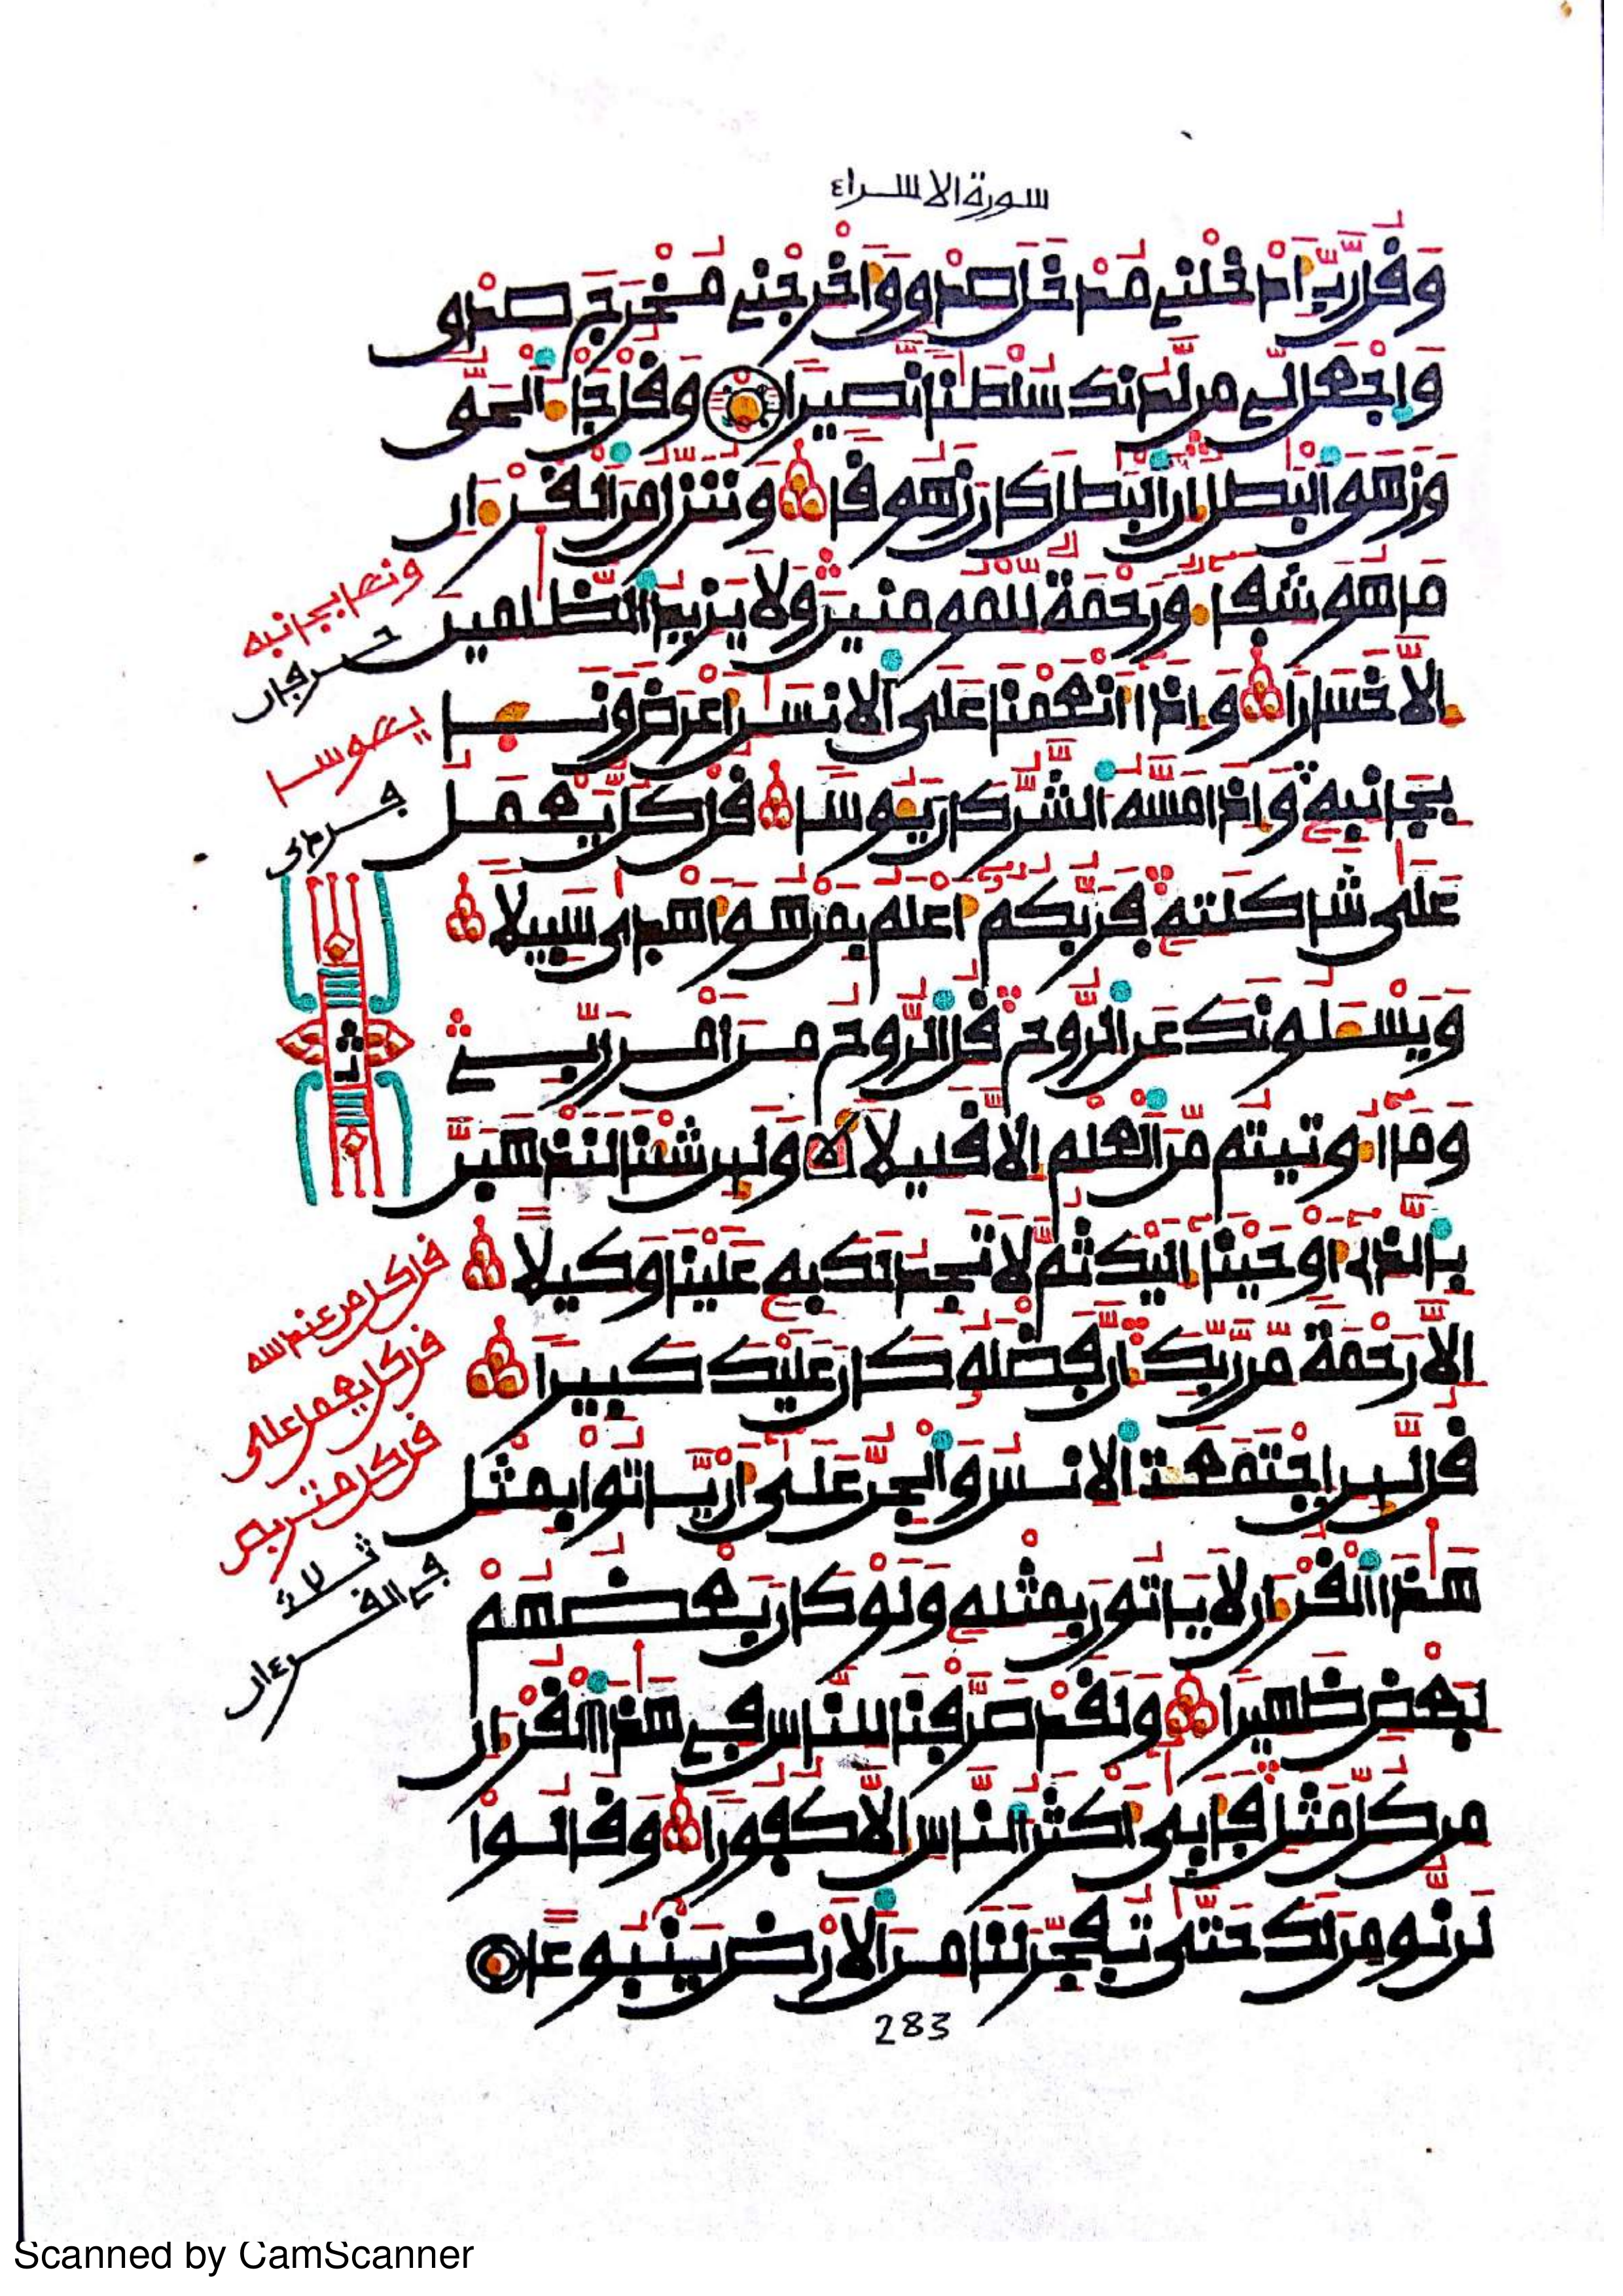 سورة الاسراء
وَقُل رَّبِّ أَدْخِلْنِے مُدْخَلَ صِدْقٖ وَأَخْرِجْنِے مُخْرَجَ صِدْقٖ
وَاجْعَل لِّے مِن لَّدُنكَ سُلْطَٰناٗ نَّصِيراٗ وَقُلْ جَآءَ اَ۬لْحَقُّ
وَزَهَقَ اَ۬لْبَٰطِلُ إِنَّ اَ۬لْبَٰطِلَ كَانَ زَهُوقاٗ وَنُنَزِّلُ مِنَ اَ۬لْقُرْءَانِ
مَا هُوَ شِفَآءٞ وَرَحْمَةٞ لِّلْمُومِنِينَ وَلَا يَزِيدُ اُ۬لظَّٰلِمِينَ
إِلَّا خَسَاراٗ وَإِذَآ أَنْعَمْنَا عَلَى اَ۬لِانسَٰنِ أَعْرَضَ وَنَـَٔا
بِجَانِبِهِۦ وَإِذَا مَسَّهُ اُ۬لشَّرُّ كَانَ يَـُٔوساٗ قُلْ كُلّٞ يَعْمَلُ
عَلَىٰ شَاكِلَتِهِۦ فَرَبُّكُمُۥٓ أَعْلَمُ بِمَنْ هُوَ أَهْدَىٰ سَبِيلاٗ
وَيَسْـَٔلُونَكَ عَنِ اِ۬لرُّوحِ قُلِ اِ۬لرُّوحُ مِنَ اَمْرِ رَبِّے
وَمَآ أُوتِيتُم مِّنَ اَ۬لْعِلْمِ إِلَّا قَلِيلاٗ وَلَئِن شِئْنَا لَنَذْهَبَنَّ
بِالذِےٓ أَوْحَيْنَآ إِلَيْكَ ثُمَّ لَا تَجِدُ لَكَ بِهِۦ عَلَيْنَا وَكِيلاً
إِلَّا رَحْمَةٗ مِّن رَّبِّكَ إِنَّ فَضْلَهُۥ كَانَ عَلَيْكَ كَبِيراٗ
قُل لَّئِنِ اِ۪جْتَمَعَتِ اِ۬لِانسُ وَالْجِنُّ عَلَىٰٓ أَنْ يَّاتُواْ بِمِثْلِ
هَٰذَا اَ۬لْقُرْءَانِ لَا يَاتُونَ بِمِثْلِهِۦ وَلَوْ كَانَ بَعْضُهُمْ
لِبَعْضٖ ظَهِيراٗ وَلَقَدْ صَرَّفْنَا لِلنَّاسِ فِے هَٰذَا اَ۬لْقُرْءَانِ
مِن كُلِّ مَثَلٖ فَأَبَىٰٓ أَكْثَرُ اُ۬لنَّاسِ إِلَّا كُفُوراٗ وَقَالُواْ
لَن نُّومِنَ لَكَ حَتَّىٰ تُفَجِّرَ لَنَا مِنَ اَ۬لَارْضِ يَنۢبُوعاً
ونـٔا بجانبه
حرفان
يـٔوسا
ثـ
قل كل من عند الله
قل كل يعمل على
قل كل متربص
ثلاث
في القرءان
283
Scanned by CamScanner